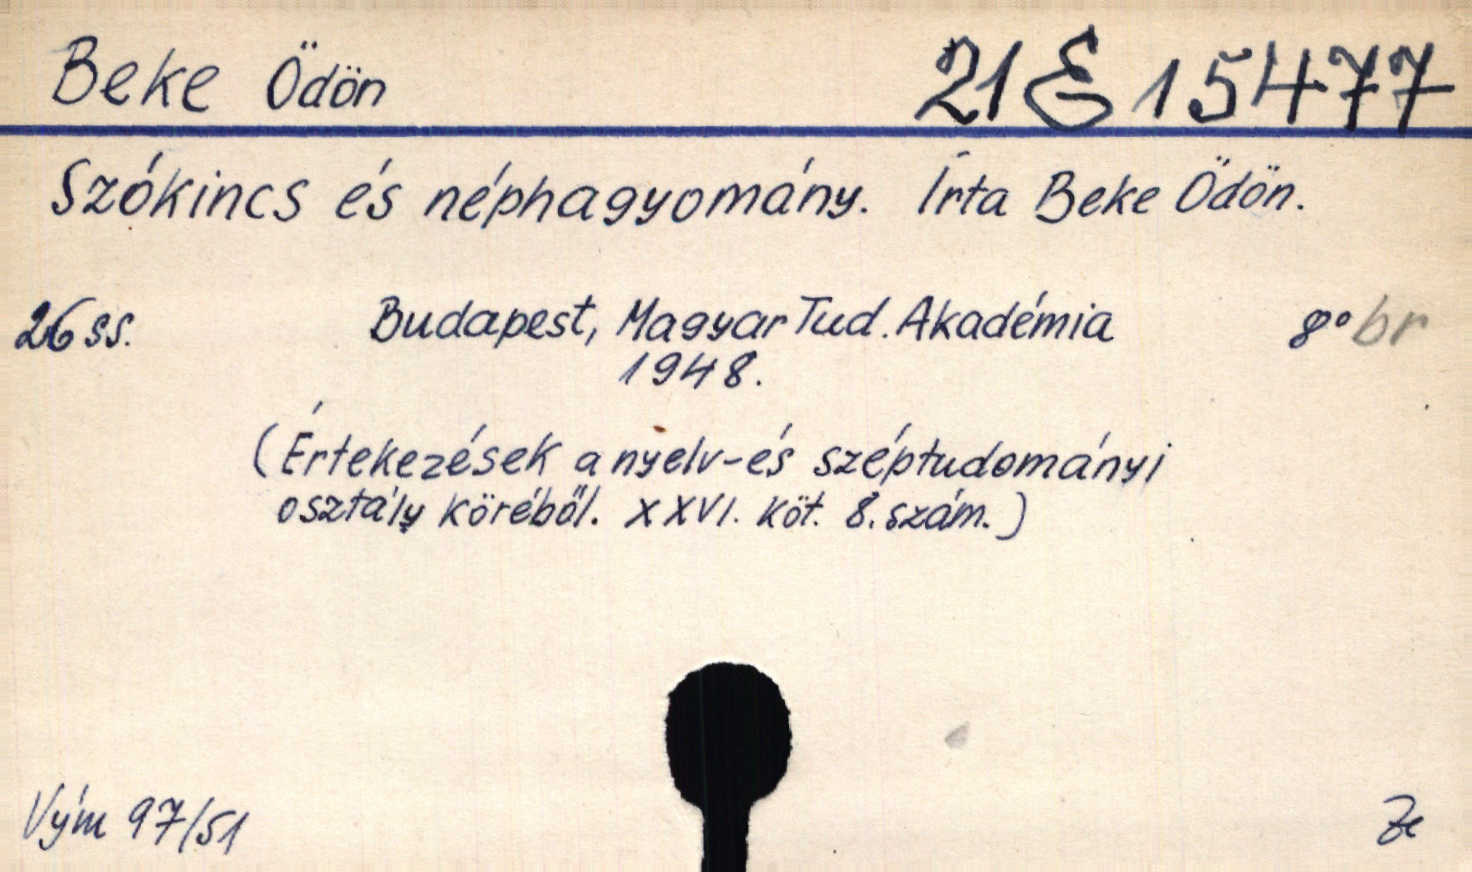 Beke Ödön 21 E 15477
Szókincs és néphagyomány. Írta Beke Ödön.
26 ss. Budapest, Magyar Tud. Akadémia 8° br
1948.
(Értekezések a nyelv-és széptudományi
osztály köréből. XXVI. köt. 8. szám.)
Vým 97/51 Ze